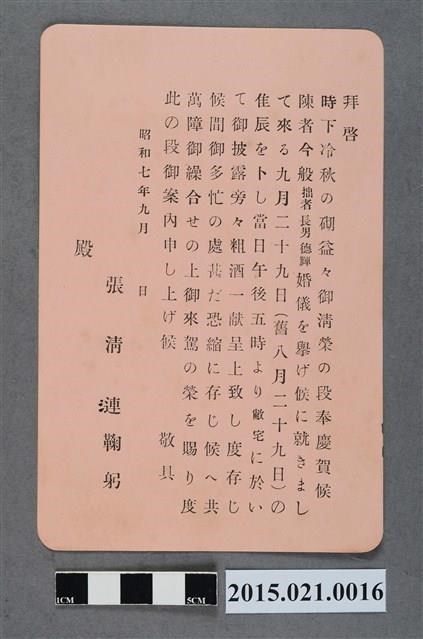 拜啓
時下冷秋の砌益々御淸榮の段奉慶賀候
陳者今般拙者長男德輝婚儀を擧げ候に就きまし
て來る九月二十九日(舊八月二十九日)の
佳辰を卜し當日午後五時より敝宅に於い
て御披露旁々粗酒一献呈上致し度存じ
候間御多忙の處甚だ恐縮に存じ候へ共
萬障御繰合せの上御來駕の榮を賜り度
此の段御案內申し上げ候 敬具
昭和七年九月 日
張淸連鞠躬
殿
1CM
5CM
2015.021.0016